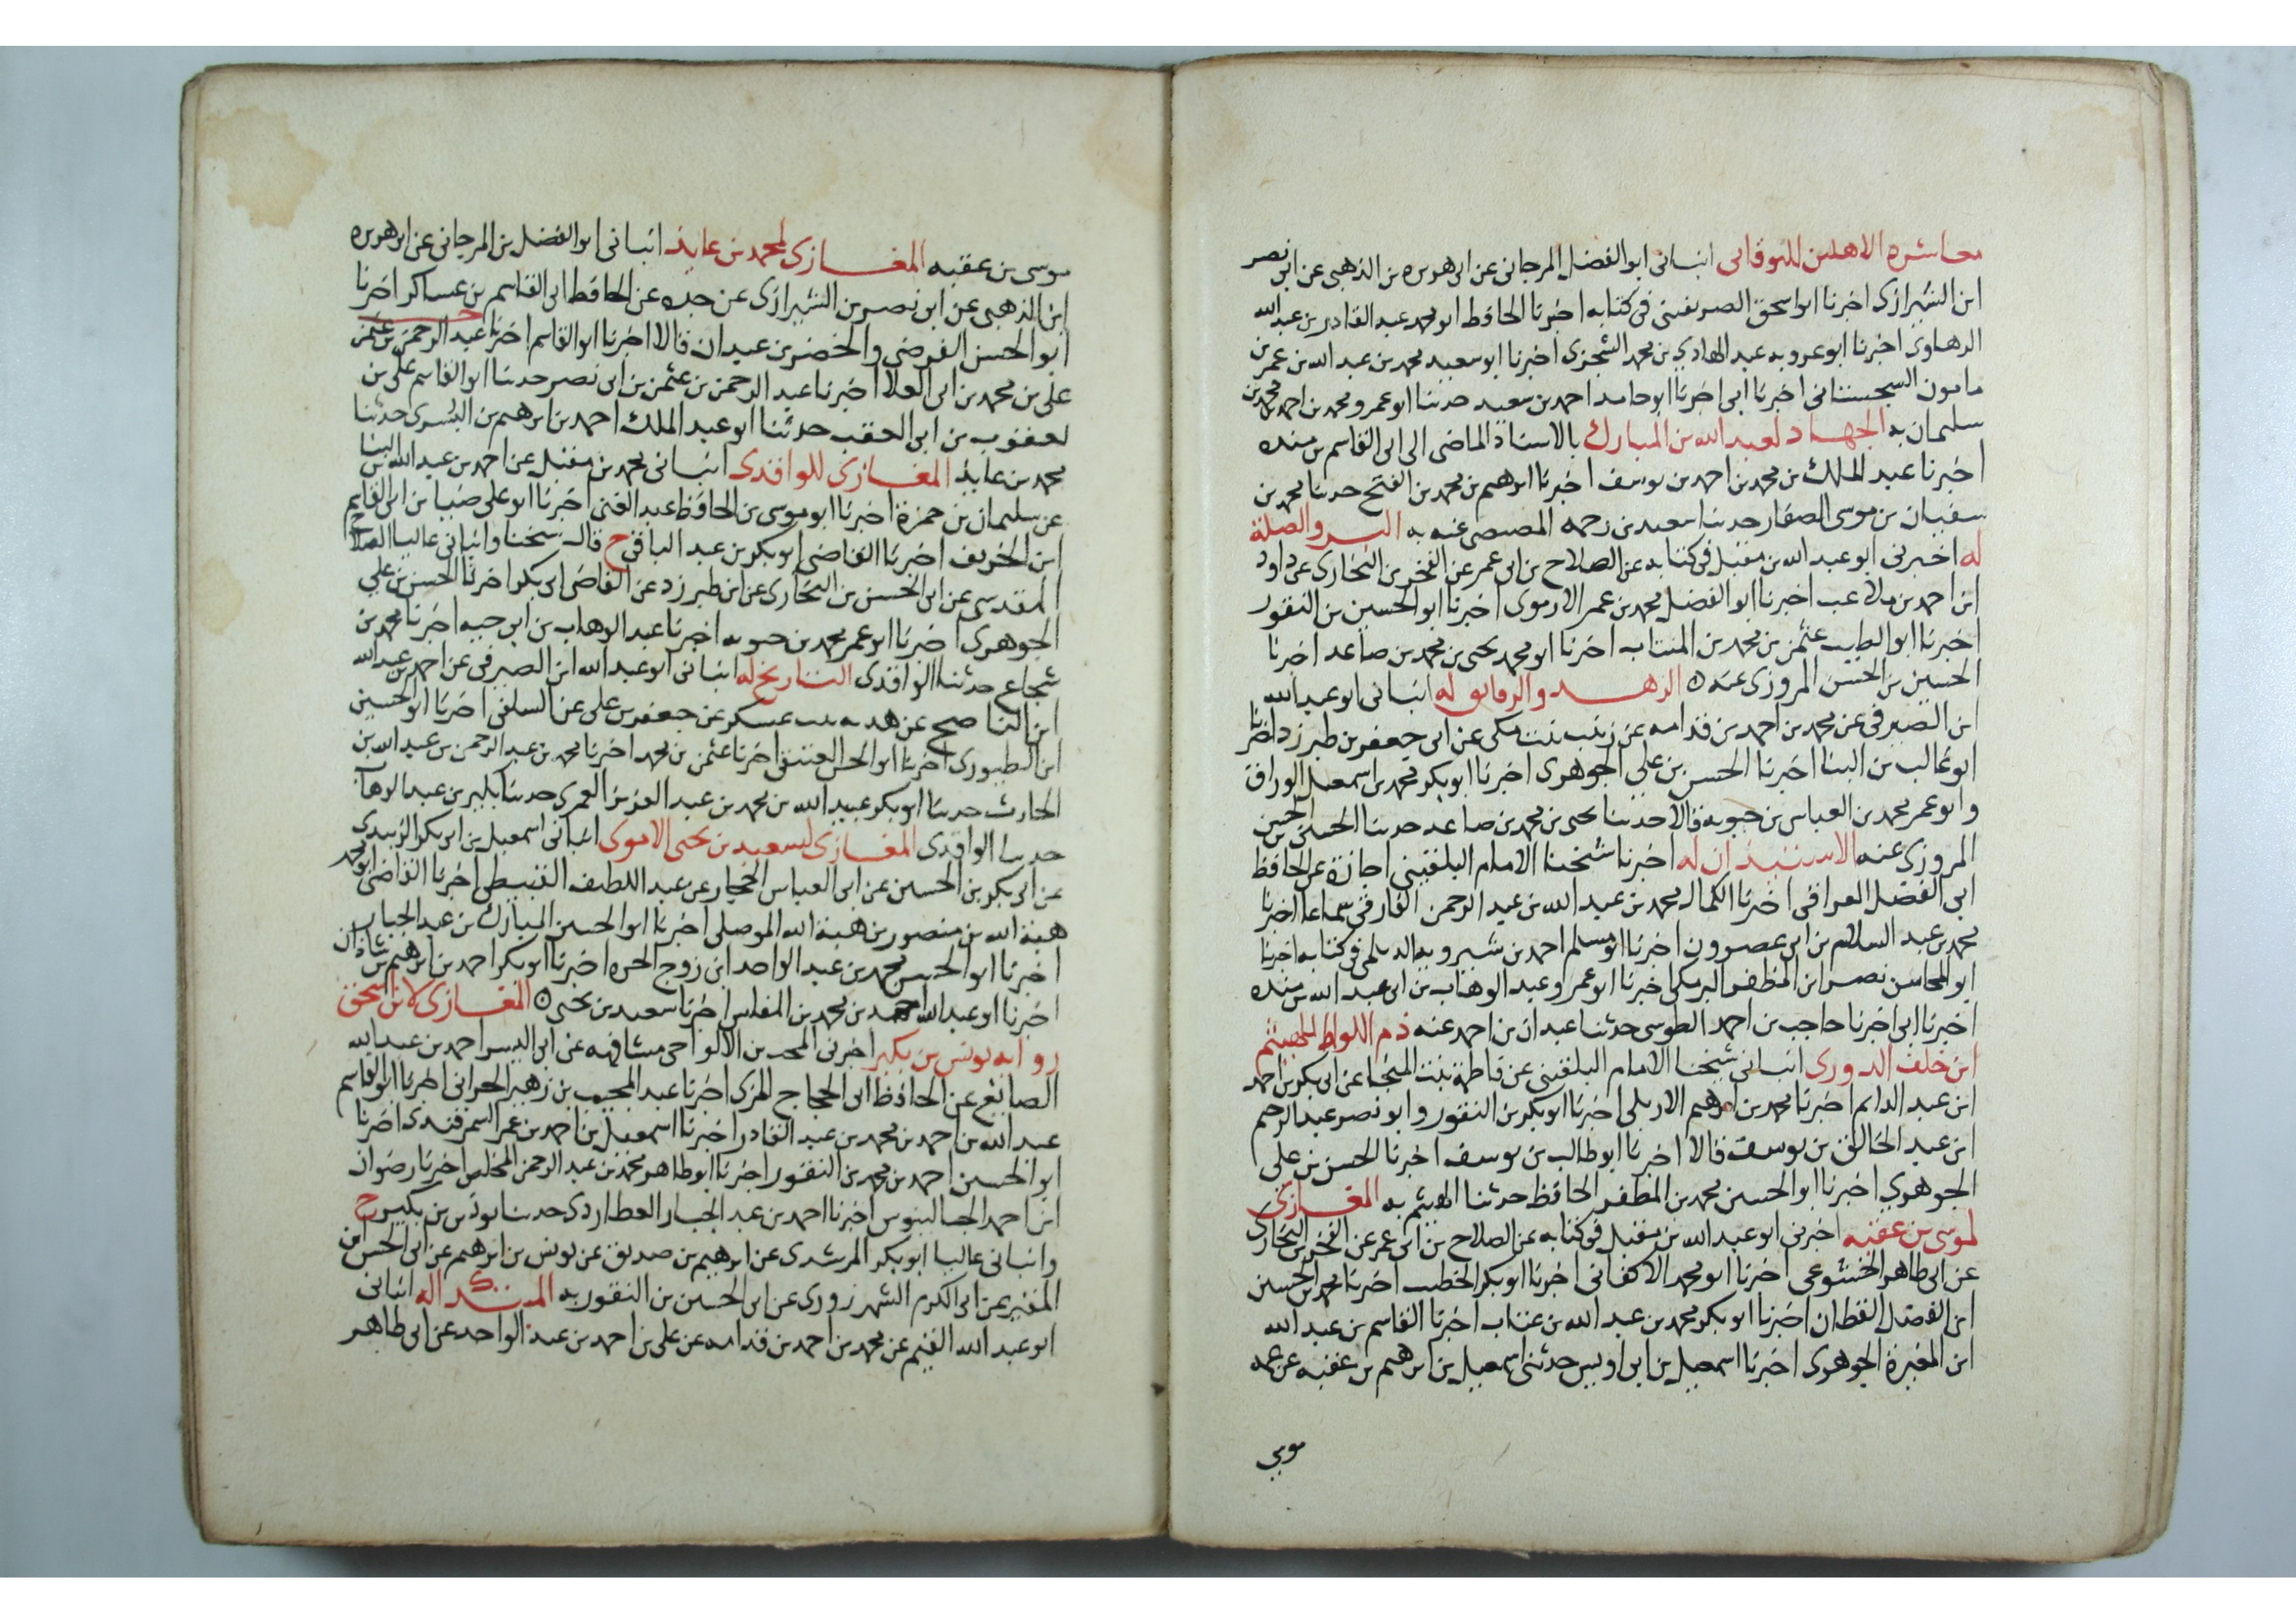 معاشرة الاهلين للنوقاتي انباني ابو الفضل المرجاني عن ابي هريره بن الذهبي عن ابي نصر
ابن الشيرازي اخبرنا ابو اسحق الصريفيني في كتابه اخبرنا الحافظ ابو محمد عبد القادر بن عبد الله
الرهاوي اخبرنا ابو عروبه عبد الهادي بن محمد السجزي اخبرنا ابو سعيد محمد بن عبد الله بن عمر بن
مامون السجستاني اخبرنا ابي اخبرنا ابو حامد احمد بن سعيد حدثنا ابو عمرو محمد بن احمد بن محمد بن
سليمان به الجهاد لعبد الله بن المبارك بالاسناد الماضي الى ابي القاسم بن منده
اخبرنا عبد الملك بن محمد بن احمد بن يوسف اخبرنا ابرهيم بن محمد بن الفتح حدثنا محمد بن
سفيان بن موسى الصفار حدثنا سعيد بن رحمه المصيصي عنه به البر والصلة
له اخبرني ابو عبد الله بن مقبل في كتابه عن الصلاح بن ابي عمر عن الفخر بن البخاري عن داود
ابن احمد بن ملاعب اخبرنا ابو الفضل محمد بن عمر الارموي اخبرنا ابو الحسين بن النقور
اخبرنا ابو الطيب عثمن بن محمد بن المنتاب اخبرنا ابو محمد يحيى بن محمد بن صاعد اخبرنا
الحسين بن الحسن المروزي عنه ه الزهد والرقايق له انباني ابو عبد الله
ابن الصيرفي عن محمد بن احمد بن قدامه عن زينب بنت مكي عن ابي حفص بن طبرزد اخبرنا
ابو غالب بن البنا اخبرنا الحسن بن علي الجوهري اخبرنا ابو بكر محمد بن اسمعيل الوراق
وابو عمر محمد بن العباس بن حيويه قالا حدثنا يحيى بن محمد بن صاعد حدثنا الحسين بن الحسن
المروزي عنه الاستئذان له اخبرنا شيخنا الامام البلقيني اجازة عن الحافظ
ابي الفضل العراقي اخبرنا الكمال محمد بن عبد الله بن عبد الرحمن الفارقي سماعا اخبرنا
محمد بن عبد السلام بن ابي عصرون اخبرنا ابو مسلم احمد بن شيرويه الديلمي في كتابه اخبرنا
ابو المحاسن نصر ابن المظفر البرمكي اخبرنا ابو عمرو عبد الوهاب بن ابي عبد الله بن منده
اخبرنا ابي اخبرنا حاجب بن احمد الطوسي حدثنا عبدان بن احمد عنه ذم اللواط للهيثم
ابن خلف الدوري انباني شيخنا الامام البلقيني عن فاطمة بنت المنجا عن ابي بكر بن احمد
ابن عبد الدايم اخبرنا محمد بن ابرهيم الاربلي اخبرنا ابو بكر بن النقور وابو نصر عبد الرحيم
ابن عبد الخالق بن يوسف قالا اخبرنا ابو طالب بن يوسف اخبرنا الحسن بن علي
الجوهري اخبرنا ابو الحسين محمد بن المظفر الحافظ حدثنا الهيثم به المغازي
لموسى بن عقبه اخبرني ابو عبد الله بن مقبل في كتابه عن الصلاح بن ابي عمر عن الفخر بن البخاري
عن ابي طاهر الخشوعي اخبرنا ابو محمد الاكفاني اخبرنا ابو بكر الخطيب اخبرنا محمد بن الحسين
ابن الفضل القطان اخبرنا ابو بكر محمد بن عبد الله بن عتاب اخبرنا القاسم بن عبد الله
ابن المغيرة الجوهري اخبرنا اسمعيل بن ابي اويس حدثني اسمعيل بن ابرهيم بن عقبه عن عمه
موسى
موسى بن عقبه المغازي لمحمد بن عايذ انباني ابو الفضل بن المرجاني عن ابي هريره
ابن الذهبي عن ابي نصر بن الشيرازي عن جده عن الحافظ ابي القاسم بن عساكر اخبرنا
ابو الحسن الفرضي والخضر بن عبدان قالا اخبرنا ابو القاسم اخبرنا عبد الرحمن بن عثمن
علي بن محمد بن ابي العلا اخبرنا عبد الرحمن بن عثمن بن ابي نصر حدثنا ابو القاسم علي بن
يعقوب بن ابي العقب حدثنا ابو عبد الملك احمد بن ابرهيم بن البسري حدثنا
محمد بن عايذ المغازي للواقدي انباني محمد بن مقبل عن احمد بن عبد الله بن البنا
عن سليمان بن حمزة اخبرنا ابو موسى بن الحافظ عبد الغني اخبرنا ابو علي ضيا بن ابي القاسم
ابن الخريف اخبرنا القاضي ابو بكر بن عبد الباقي ح قال شيخنا وانباني عاليا الصلاح
المقدسي عن ابي الحسن بن البخاري عن ابن طبرزد عن القاضي ابي بكر اخبرنا الحسن بن علي
الجوهري اخبرنا ابو عمر محمد بن حيويه اخبرنا عبد الوهاب بن ابي حيه اخبرنا محمد بن
شجاع حدثنا الواقدي التاريخ له انباني ابو عبد الله ابن الصيرفي عن احمد بن عبد الله
ابن الناصح عن هديه بنت عسكر عن جعفر بن علي عن السلفي اخبرنا ابو الحسين
ابن الطيوري اخبرنا ابو الحسن العتيقي اخبرنا عثمن بن محمد اخبرنا محمد بن عبد الرحمن بن عبد الله بن
الحارث حدثنا ابو بكر عبيد الله بن محمد بن عبد العزيز العمري حدثنا بن عبد الوهاب
حدثنا الواقدي المغازي لسعيد بن يحيى الاموي انباني اسمعيل بن ابي بكر الزبيدي
عن ابي بكر بن الحسين عن ابي العباس الحجار عن عبد اللطيف القبيطي اخبرنا القاضي ابو محمد
هبة الله بن منصور بن هبة الله الموصلي اخبرنا ابو الحسين المبارك بن عبد الجبار
اخبرنا ابو الحسن محمد بن عبد الواحد ابن زوج الحره اخبرنا ابو بكر احمد بن ابرهيم بن شاذان
اخبرنا ابو عبد الله احمد بن محمد بن المغلس اخبرنا سعيد بن يحيى ه المغازي لابن اسحق
رواية يونس بن بكير اخبرني المحب بن الالواحي مشافهه عن ابي اليسر احمد بن عبد الله
الصايغ عن الحافظ ابي الحجاج المزي اخبرنا عبد المجيب بن زهير الحراني اخبرنا ابو القاسم
عبد الله بن احمد بن محمد بن عبد القادر اخبرنا اسمعيل بن احمد بن عمر السمرقندي اخبرنا
ابو الحسين احمد بن محمد بن النقور اخبرنا ابو طاهر محمد بن عبد الرحمن المخلص اخبرنا رضوان
ابن احمد الجالينوس اخبرنا احمد بن عبد الجبار العطاردي حدثنا يونس بن بكير ح
وانباني عاليا ابو بكر المرشدي عن ابرهيم بن صديق عن يونس بن ابرهيم عن ابي الحسن ابن
المقير عن ابي الكرم الشهرزوري عن ابي الحسين بن النقور به له انباني
ابو عبد الله القيم عن محمد بن احمد بن قدامه عن علي بن احمد بن عبد الواحد عن ابي طاهر